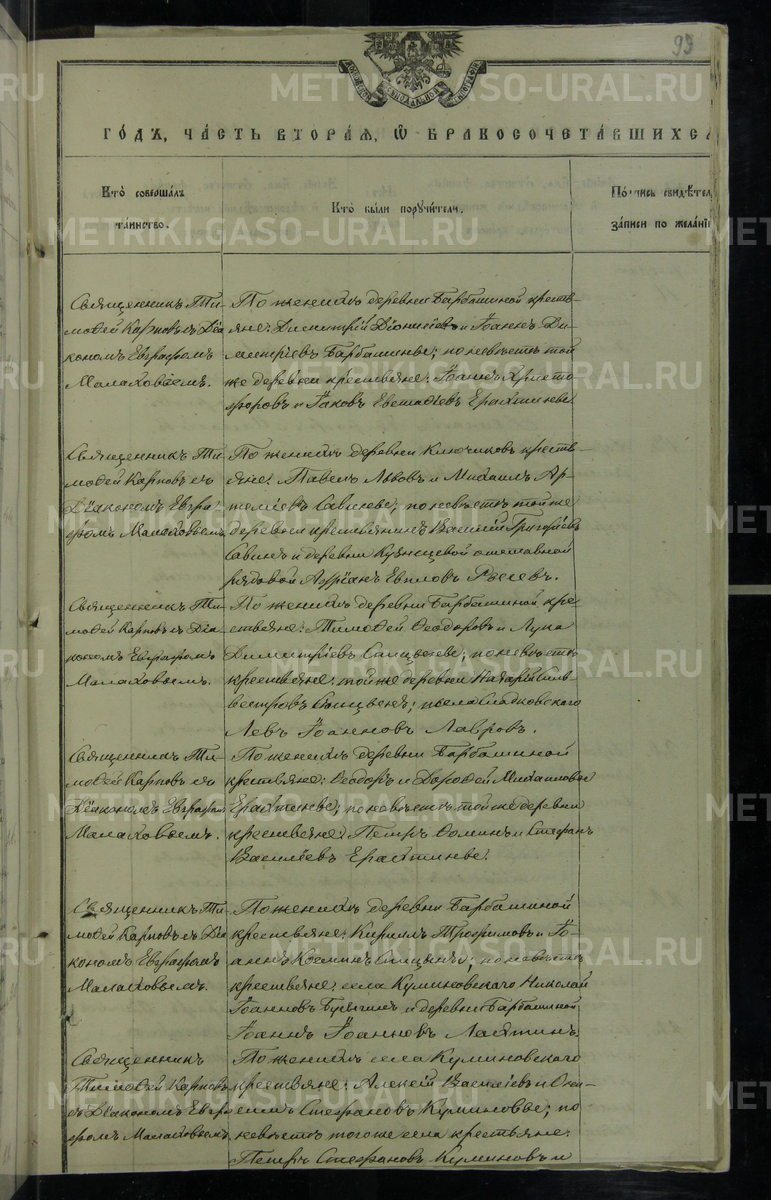 99
ГОДЪ, ЧАСТЬ ВТОРАЯ, Ѡ БРАКОСОЧЕТАВШИХСЯ
Кто совершалъ
таинство.
Кто были поручители.
Подпись свидѣтел
записи по желанію
Священникъ Ти-
моѳей Карповъ съ Діа
кономъ Евграфомъ
Малаховымъ.
По женихѣ деревни Барбашиной кресть-
яне: Димитрій Діонисіевъ и Іоаннъ Ди-
митріевъ Барбашины; по невѣстѣ той
же деревни крестьяне: Іоаннъ Христо-
форовъ и Іаковъ Евстаѳіевъ
Священникъ Ти-
моѳей Карповъ съ
Діакономъ Евгра-
фомъ Малаховымъ
По женихѣ деревни Ключиковъ кресть-
яне: Павелъ Львовъ и Михаилъ Ар-
темьевъ Савины; по невѣстѣ той же
деревни крестьянинъ Василій Григорьевъ
Савинъ и деревни Кузнецовой отставной
рядовой Адріанъ
Священникъ Ти-
моѳей Карповъ съ Діа-
кономъ Евграфомъ
Малаховымъ.
По женихѣ деревни Барбашиной кре-
стьяне: Тимоѳей Ѳеодоровъ и Лука
Димитріевъ; по невѣстѣ
крестьяне: той же деревни Назарій Силь-
вестровъ; села Сладковскаго
Левъ Іоанновъ Лавровъ.
Священникъ Ти-
моѳей Карповъ съ
Діакономъ Евграфом
Малаховымъ.
По женихѣ деревни Барбашиной
крестьяне: Ѳеодоръ и Дороѳей Михаиловы
по невѣстѣ той же деревни
крестьяне: Петръ Ѳоминъ и Стефанъ
Василіевъ
Священникъ Ти-
моѳей Карповъ съ Діа
кономъ Евграфомъ
Малаховымъ.
По женихѣ деревни Барбашиной
крестьяне: Кириллъ Трофимовъ и Іо-
аннъ Косминъ; по невѣстѣ
крестьяне: села Куминовскаго Николай
Іоанновъ и деревни Барбашиной
Іоаннъ Іоанновъ
Священникъ
Тимоѳей Карповъ
съ Діакономъ Евгра
фомъ Малаховымъ
По женихѣ села Куминовскаго
крестьяне: Алексѣй Василіевъ и Они-
симъ Стефановъ Куминовы; по
невѣстѣ того же села крестьяне:
Петръ Стефановъ Куминовъ и
METRIKI.GASO-URAL.RU